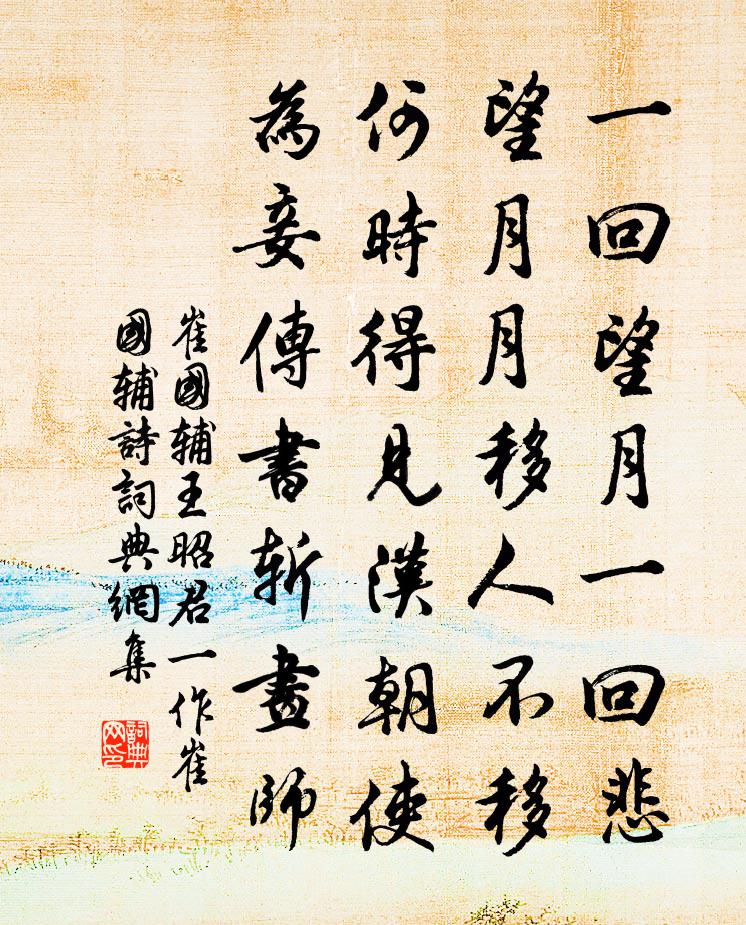 一回望月一回悲
望月月移人不移
何時得見漢朝使
為妾傳書斬畫師
崔國辅王昭君一作崔
國辅詩詞典網集
詞典網印